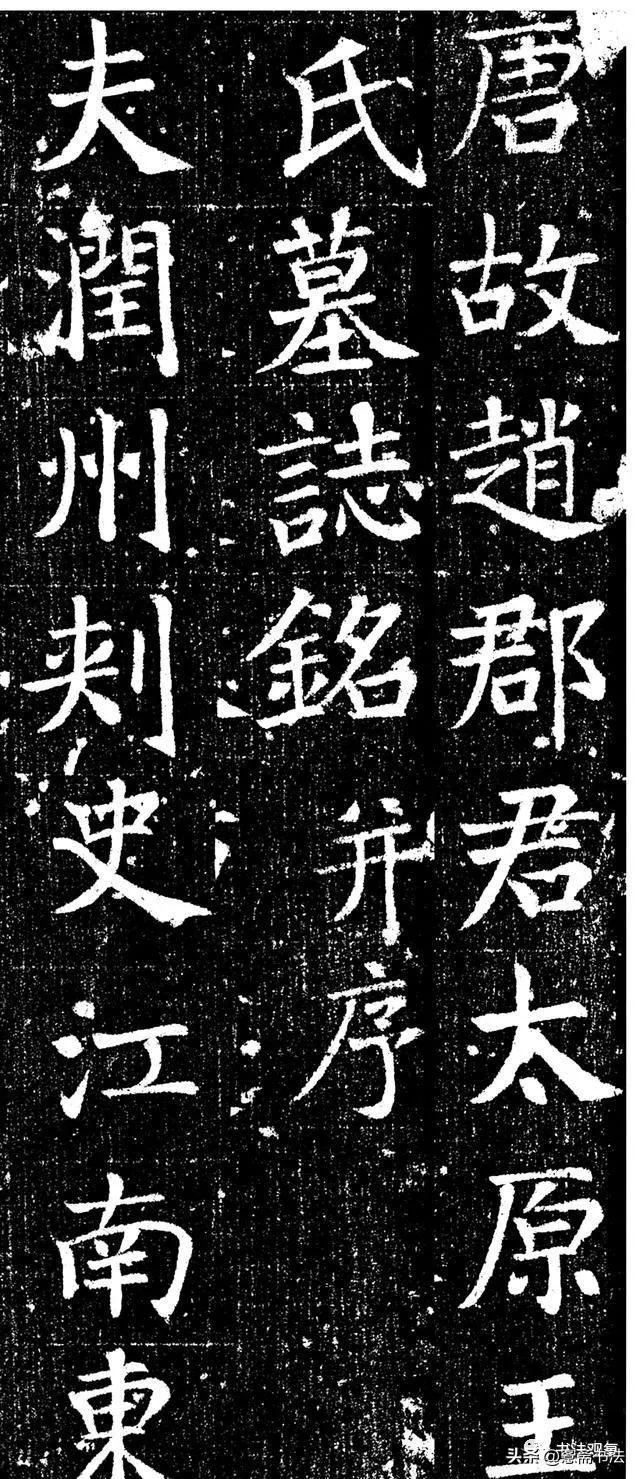 唐故趙郡君太原王
氏墓誌銘并序
夫潤州刺史江南東
书法观复
头条@意斋书法